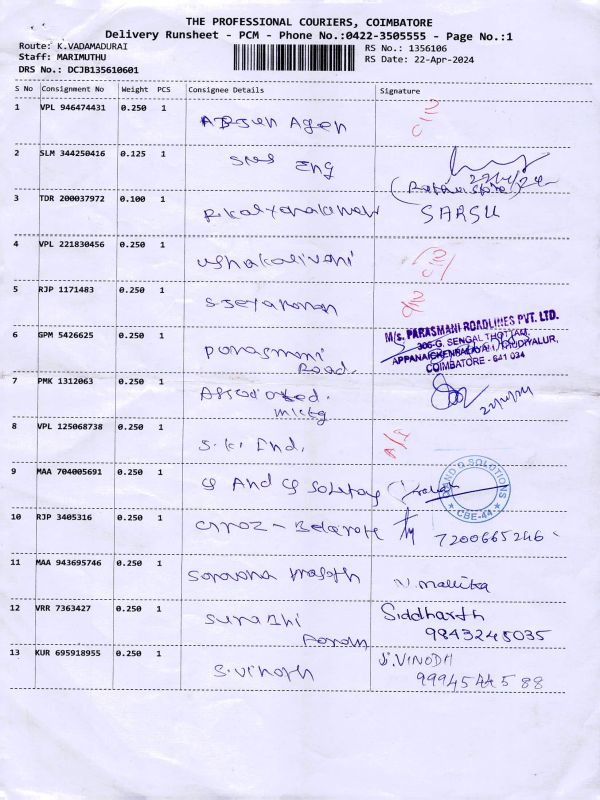 THE PROFESSIONAL COURIERS, COIMBATORE
Delivery Runsheet - PCM - Phone No.:0422-3505555 - Page No.:1
Route: K.VADAMADURAI RS No.: 1356106
Staff: MARIMUTHU RS Date: 22-Apr-2024
DRS No.: DCJB135610601
S No Consignment No Weight PCS Consignee Details Signature
1 VPL 946474431 0.250 1 Agen
2 SLM 344250416 0.125 1 SMS Eng
3 TDR 200037972 0.100 1 SARSU
4 VPL 221830456 0.250 1
5 RJP 1171483 0.250 1
6 GPM 5426625 0.250 1 Road. M/s. PARASMANI ROADLINES PVT. LTD.
306-G, SENGAL THOTTAM,
APPANAICKENPALAYAM, THUDIYALUR,
COIMBATORE - 641 034
7 PMK 1312063 0.250 1
8 VPL 125068738 0.250 1 S.K. Ind.
9 MAA 704005691 0.250 1 G And G SOLUTIONS
★ CBE-44 ★
10 RJP 3405316 0.250 1 7200665246
11 MAA 943695746 0.250 1 N. Mallika
12 VRR 7363427 0.250 1 Siddharth
9843248035
13 KUR 695918955 0.250 1 S.Vinoth S.VINODH
9994544588